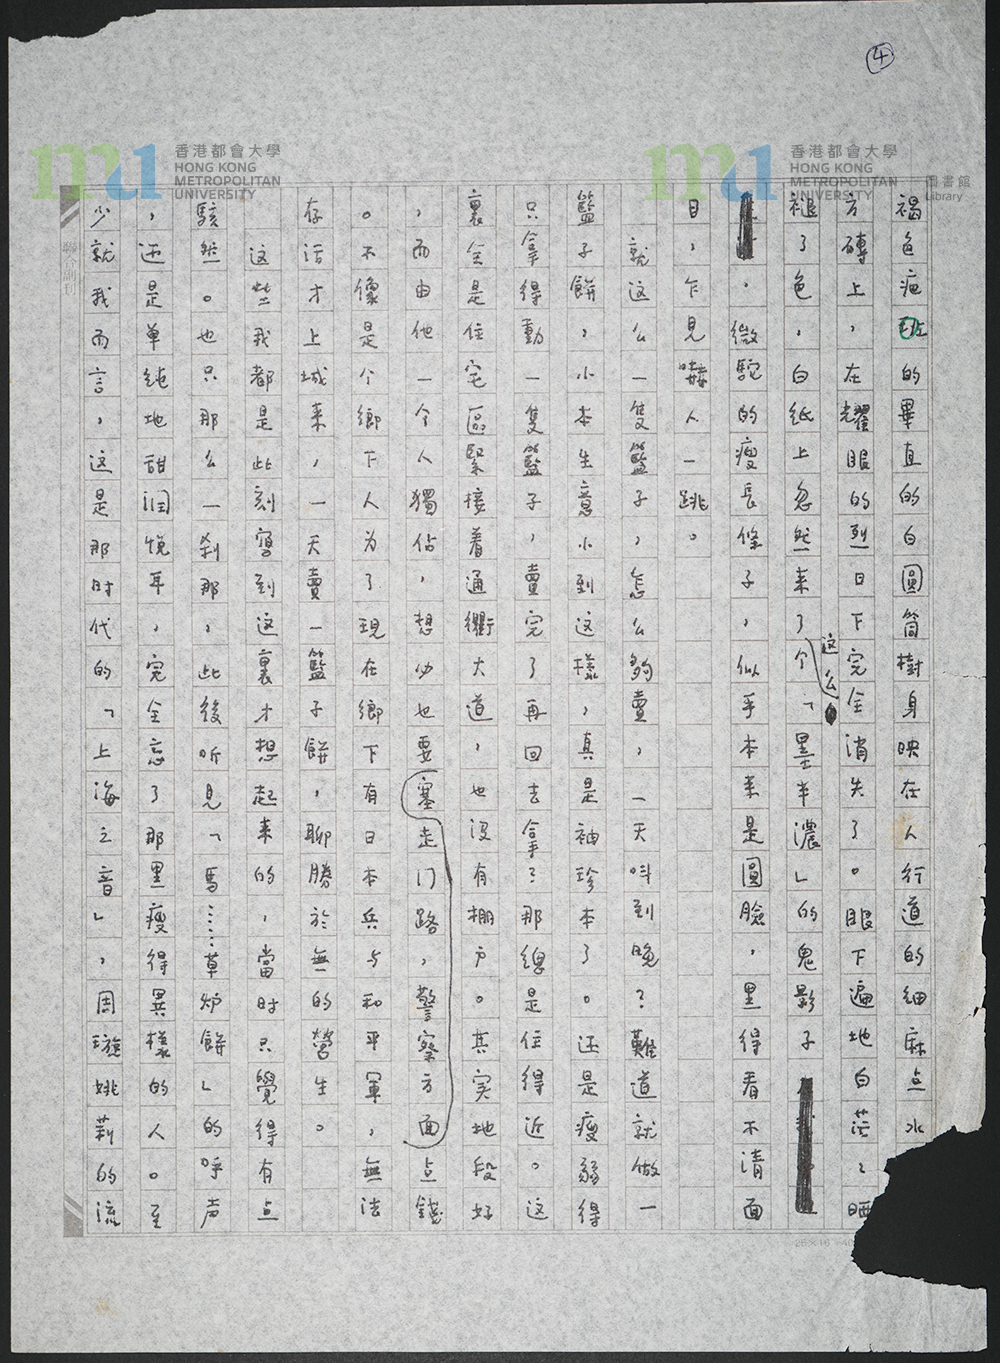 ④
香港都會大學
HONG KONG
METROPOLITAN
UNIVERSITY
香港都會大學
HONG KONG
METROPOLITAN
UNIVERSITY
圖書館
Library
褐色疤斑的畢直的白圓筒樹身映在人行道的細麻点水
方磚上，在耀眼的烈日下完全消失了。眼下遍地白茫々晒
褪了色，白紙上忽然来了个这么「墨半濃」的鬼影子
，微駝的瘦長條子，似乎本来是圓臉，黑得看不清面
目，乍見嚇人一跳。
就这么一隻籃子，怎么夠賣，一天呌到晚？難道就做一
籃子餅，小本生意小到这樣，真是袖珍本了。还是瘦弱得
只拿得動一隻籃子，賣完了再回去拿？那總是住得近。这
裏全是住宅區緊接着通衢大道，也没有棚户。其实地段好
，而由他一个人獨佔，想必也要塞走门路，警察方面点錢
。不像是个鄉下人为了現在鄉下有日本兵与和平軍，無法
存活才上城来，一天賣一籃子餅，聊勝於無的營生。
这些我都是此刻寫到这裏才想起来的，當时只覺得有点
駭然。也只那么一刹那，此後听見「馬……草炉餅」的呼声
，还是单純地甜润悅耳，完全忘了那黑瘦得異樣的人。至
少就我而言，这是那时代的「上海之音」，周璇姚莉的流
聯合副刊